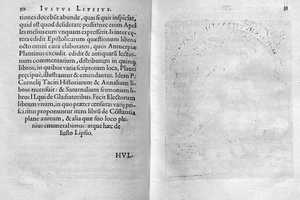 IVSTVS LIPSIVS.
tiones decebit abunde, quas si quis inspiciat,
quid est quod desideret positrere enim Apel
les melius cum vnquam expresserit. Inter ea
edidit Epistolicarum quæstionum libros
octo mira cura elaboratos, quos Antuerpiæ
Plantinus excudit. edidit & antiqua lectuum
commentarium, distributum in quinq;
libros, in quibus varia scriptorum loca, Plauti
præcipuè, illustrantur & emendantur. Idem P.
Cornelij Taciti Historiarum & Annalium
libros recensuit: & Saturnalium sermonum li-
bros II. qui de Gladiatoribus. Fecit Electorum
librum vnum, in quo præter censuras varij pri-
sci ritus proponuntur. item libros de Constantia
plane aureum, & alia quæ suo loco ple-
nius enumerabimus. atque hæc de
Iusto Lipsio.
HVL-